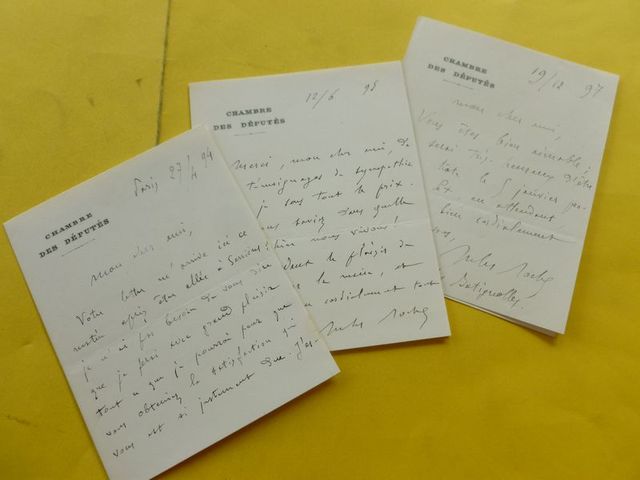 CHAMBRE
DES DÉPUTÉS
Paris 27/4 94
Mon cher ami,
Votre lettre m'arrive ici ce
après être allée à Serrières
je n'ai pas besoin de vous dire
que je ferai avec grand plaisir
tout ce que je pourrai pour que
vous obteniez la satisfaction qui
vous est si justement due. J'es-
CHAMBRE
DES DÉPUTÉS
12/6 98
Merci, mon cher ami, de
témoignages de sympathie
je sens tout le prix.
vous savez dans quelle
nous vivons!
le plaisir de
la main, et
cordialement tout
Jules Roche
CHAMBRE
DES DÉPUTÉS
19/12 97
Mon cher ami,
Vous êtes bien aimable,
serai très heureux d'être
le 5 janvier
Et en attendant,
bien cordialement
Jules Roche
Batignolles.